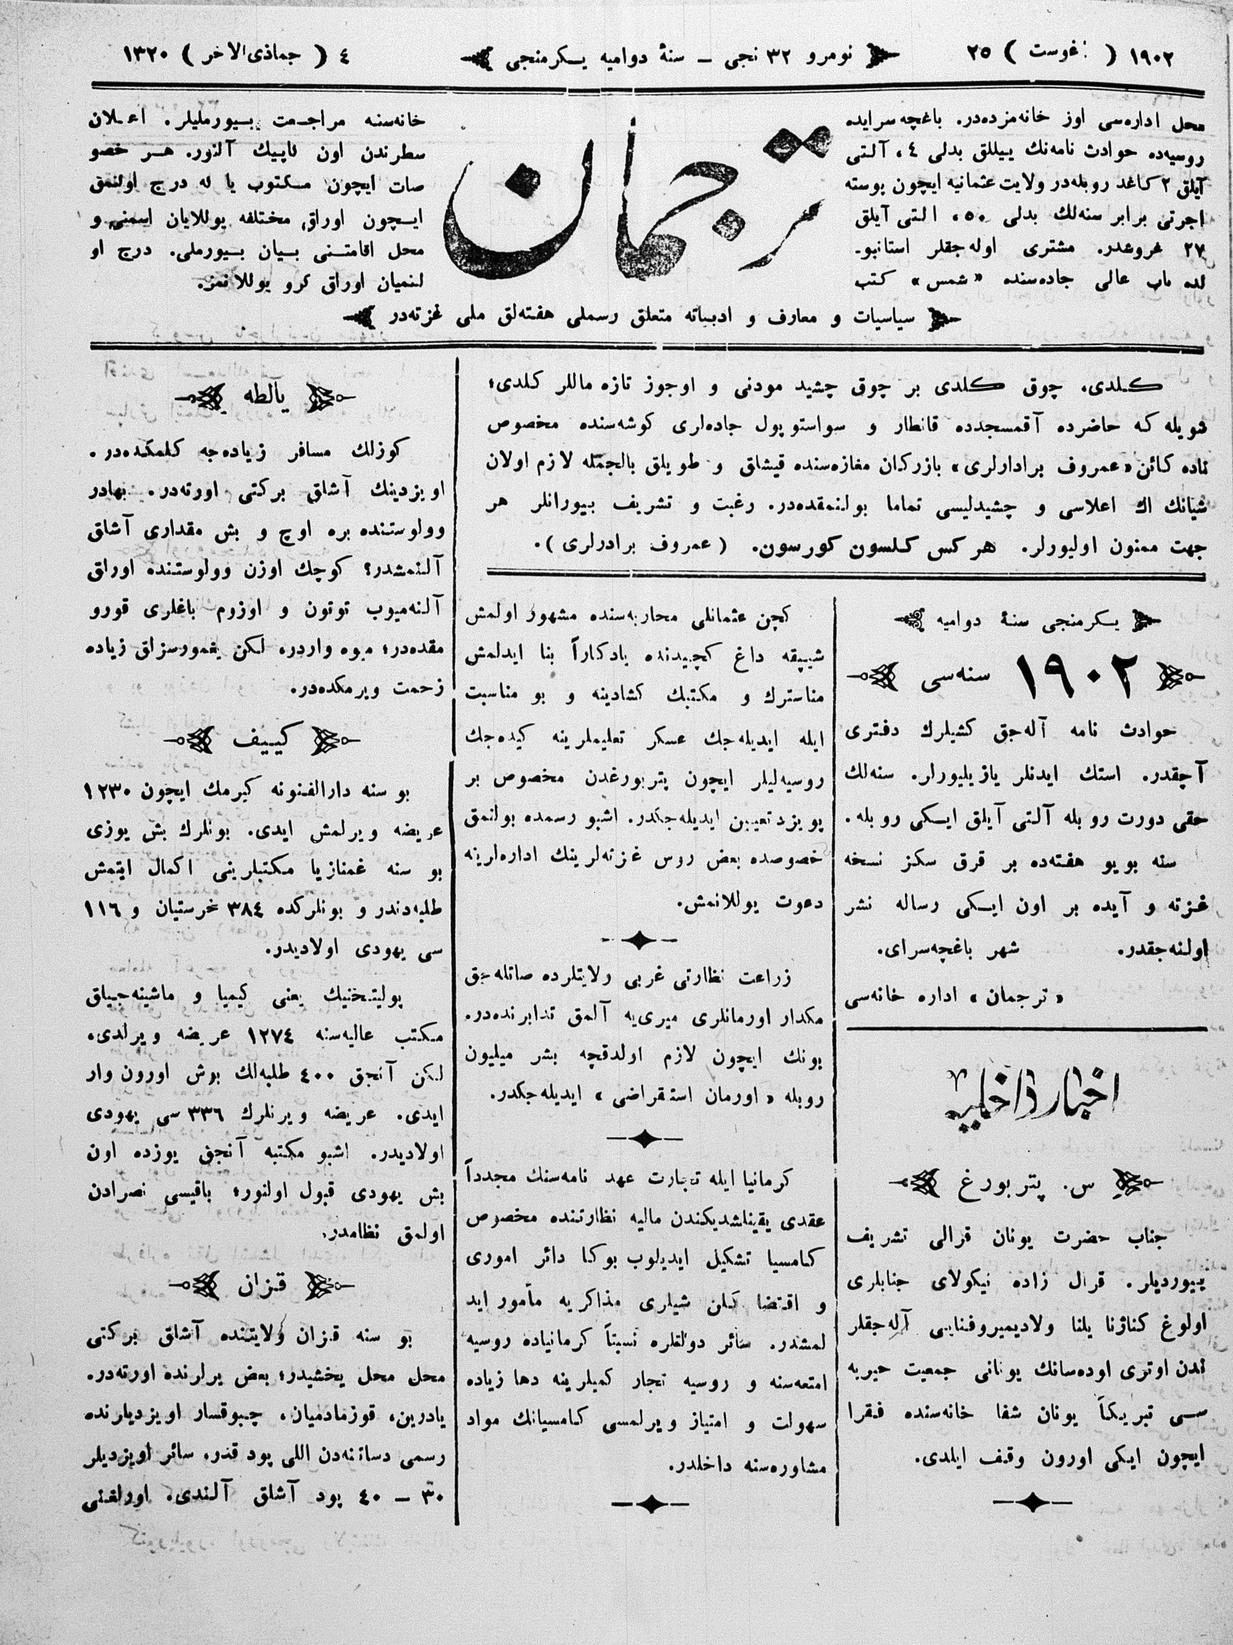 ١٩٠٢ ( غوست ) ٢٥
نومرو ٣٢ نجی – سنهٔ دوامیه یكرمنجی
٤ ( جماذی‌الاخر ) ١٣٢٠
محل اداره‌سی اوز خانه‌مزده‌در. باغچه سرایده
روسیه‌ده حوادث نامه‌نك ییللق بدلی ٤، آلتی
آیلق ٢ كاغد روبله‌در ولایت عثمانیه ایچون پوسته
اجرتی برابر سنه‌لك بدلی ٥٠، التی آیلق
٢٧ غروشدر. مشتری اوله‌جقلر استانبو-
لده باب عالی جاده‌سنده «شمس» كتب
ترجمان
خانه‌سنه مراجعت بیورملیلر. اعلان
سطرندن اون قاپیك آلنور. هر خصو
صات ایچون مكتوب یا له درج اولنمق
ایچون اوراق مختلفه یوللایان اسمنی و
محل اقامتنی بیان بیورملی. درج او
لنمیان اوراق كرو یوللانمز.
سیاسیات و معارف و ادبیاته متعلق رسملی هفته‌لق ملی غزته‌در
كلدی، چوق كلدی بر چوق چشید مودنی و اوجوز تازه ماللر كلدی؛
شویله كه حاضرده آقمسجدده قانطار و سواستوپول جاده‌لری كوشه‌سنده مخصوص
ناده كائن «عمروف برادارلری» بازركان مغازه‌سنده قیشلق و طویلق بالجمله لازم اولان
شیانك اك اعلاسی و چشیدلیسی تماما بولنمقده‌در. رغبت و تشریف بیورانلر هر
جهت ممنون اولیورلر. هركس كلسون كورسون. (عمروف برادرلری).
یكرمنجی سنهٔ دوامیه
١٩٠٢ سنه‌سی
حوادث نامه آله‌جق كشیلرك دفتری
آچقدر. استك ایدنلر یازیلیورلر. سنه‌لك
حقی دورت روبله آلتی آیلق ایكی روبله.
سنه بویو هفته‌ده بر قرق سكز نسخه
غزته و آیده بر اون ایكی رساله نشر
اولنه‌جقدر. شهر باغچه‌سرای.
«ترجمان» اداره خانه‌سی
اخبار داخلیه
س. پتربورغ
جناب حضرت یونان قرالی تشریف
بیوردیلر. قرال زاده نیكولای جنابلری
اولوغ كنازنا یلنا ولادیمیروفنایی آله‌جقلر
ندن اوتری اوده‌سانك یونانی جمعیت خیریه
سی تبریكاً یونان شفا خانه‌سنده فقرا
ایچون ایكی اورون وقف ایلدی.
كچن عثمانلی محاربه‌سنده مشهور اولمش
شیپقه داغ كچیدنده یادكاراً بنا ایدلمش
مناسترك و مكتبك كشادینه و بو مناسبت
ایله ایدیله‌جك عسكر تعلیملرینه كیده‌جك
روسیه‌لیلر ایچون پتربورغدن مخصوص بر
پویزد تعیین ایدیله‌جكدر. اشبو رسمده بولنمق
خصوصده بعض روس غزته‌لرینك اداره‌لرینه
دعوت یوللانمش.
زراعت نظارتی غربی ولایتلرده صاتله‌جق
مكدار اورمانلری میری‌یه آلمق تدابرنده‌در.
بونك ایچون لازم اولدقچه بشر میلیون
روبله «اورمان استقراضی» ایدیله‌جكدر.
كرمانیا ایله تجارت عهد نامه‌سنك مجدداً
عقدی یقینلشدیكندن مالیه نظارتنده مخصوص
كامسیا تشكیل ایدیلوب بوكا دائر اموری
و اقتضا كلن شیلری مذاكریه مأمور اید
لمشدر. سائر دولتلره نسبتاً كرمانیاده روسیه
امتعه‌سنه و روسیه تجار كمیلرینه دها زیاده
سهولت و امتیاز ویرلمسی كامسیانك مواد
مشاوره‌سنه داخلدر.
یالطه
كوزلك مسافر زیاده‌جه كلمكده‌در.
اویزدینك آشلق بركتی اورته‌در. بهادر
وولوستنده بره اوچ و بش مقداری آشلق
آلنمشدر؟ كوچك اوزن وولوستنده اوراق
آلنه‌میوب توتون و اوزوم باغلری قورو
مقده‌در؛ میوه واردر، لكن یغمورسزلق زیاده
زحمت ویرمكده‌در.
كییف
بو سنه دارالفنونه كیرمك ایچون ١٢٣٠
عریضه ویرلمش ایدی. بونلرك بش یوزی
بو سنه غمنازیا مكتبلرینی اكمال ایتمش
طلبه‌دندر و بونلركده ٣٨٤ خرستیان و ١١٦
سی یهودی اولادیدر.
پولیتخنیك یعنی كیمیا و ماشینه‌جیلق
مكتب عالیه‌سنه ١٢٧٤ عریضه ویرلدی.
لكن آنجق ٤٠٠ طلبه‌لك بوش اورون وار
ایدی. عریضه ویرنلرك ٣٣٦ سی یهودی
اولادیدر. اشبو مكتبه آنجق یوزده اون
بش یهودی قبول اولنور؛ باقیسی نصرادن
اولمق نظامدر.
قزان
بو سنه قزان ولایتنده آشلق بركتی
محل محل یخشیدر؛ بعض یرلرنده اورته‌در.
یادرین، قوزمادمیان، چبوقسار اویزدیلرنده
رسمی دساتنه‌دن اللی پود قدر، سائر اویزدیلر
٣٠ – ٤٠ پود آشلق آلندی. اورلغنی